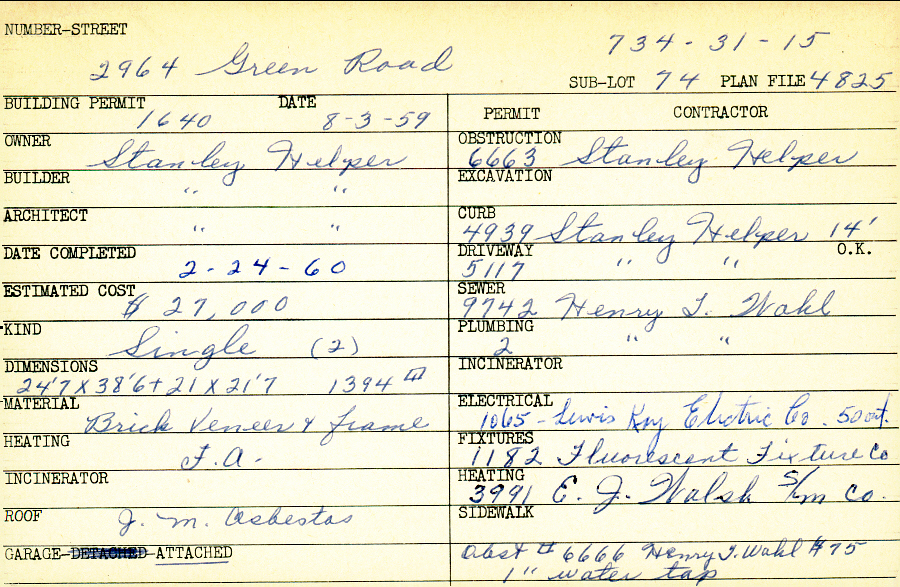 NUMBER-STREET
734-31-15
2964 Green Road
SUB-LOT 74 PLAN FILE 4825
BUILDING PERMIT DATE
1640 8-3-59
PERMIT CONTRACTOR
OWNER
Stanley Helper
OBSTRUCTION
6663 Stanley Helper
BUILDER
" "
EXCAVATION
ARCHITECT
" "
CURB
4939 Stanley Helper 14'
DATE COMPLETED
2-24-60
DRIVEWAY O.K.
5117 " "
ESTIMATED COST
$ 27,000
SEWER
9742 Henry J. Wahl
KIND
Single (2)
PLUMBING
2 " "
DIMENSIONS
24'7 X 38'6 + 21 X 21'7 1394
INCINERATOR
MATERIAL
Brick Veneer & frame
ELECTRICAL
1065 - Lewis Kay Electric Co. 50 out.
HEATING
F.A.
FIXTURES
1182 Fluorescent Fixture Co
INCINERATOR
HEATING
3991 E. J. Walsh S/m Co.
ROOF
J. M. Asbestos
SIDEWALK
GARAGE-DETACHED-ATTACHED
Obst # 6666 Henry J. Wahl $75
1" water tap